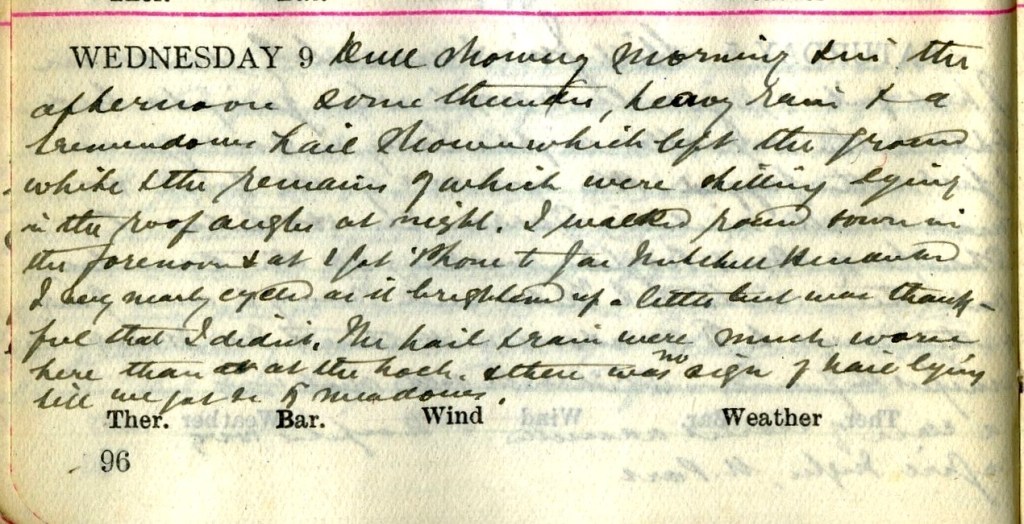 WEDNESDAY 9 Dull showery morning & in the
afternoon some thunder, heavy rain & a
tremendous hail shower which left the ground
white & the remains of which were still lying
in the roof angles at night. I walked round town in
the forenoon & at 1 got 'Phone to Jas Mitchell
I very nearly cycled as it brightened up a little but was thank-
ful that I didn't. The hail & rain were much worse
here than at at the hock. & there was no sign of hail lying
till we got to meadows.
Ther. Bar. Wind Weather
96